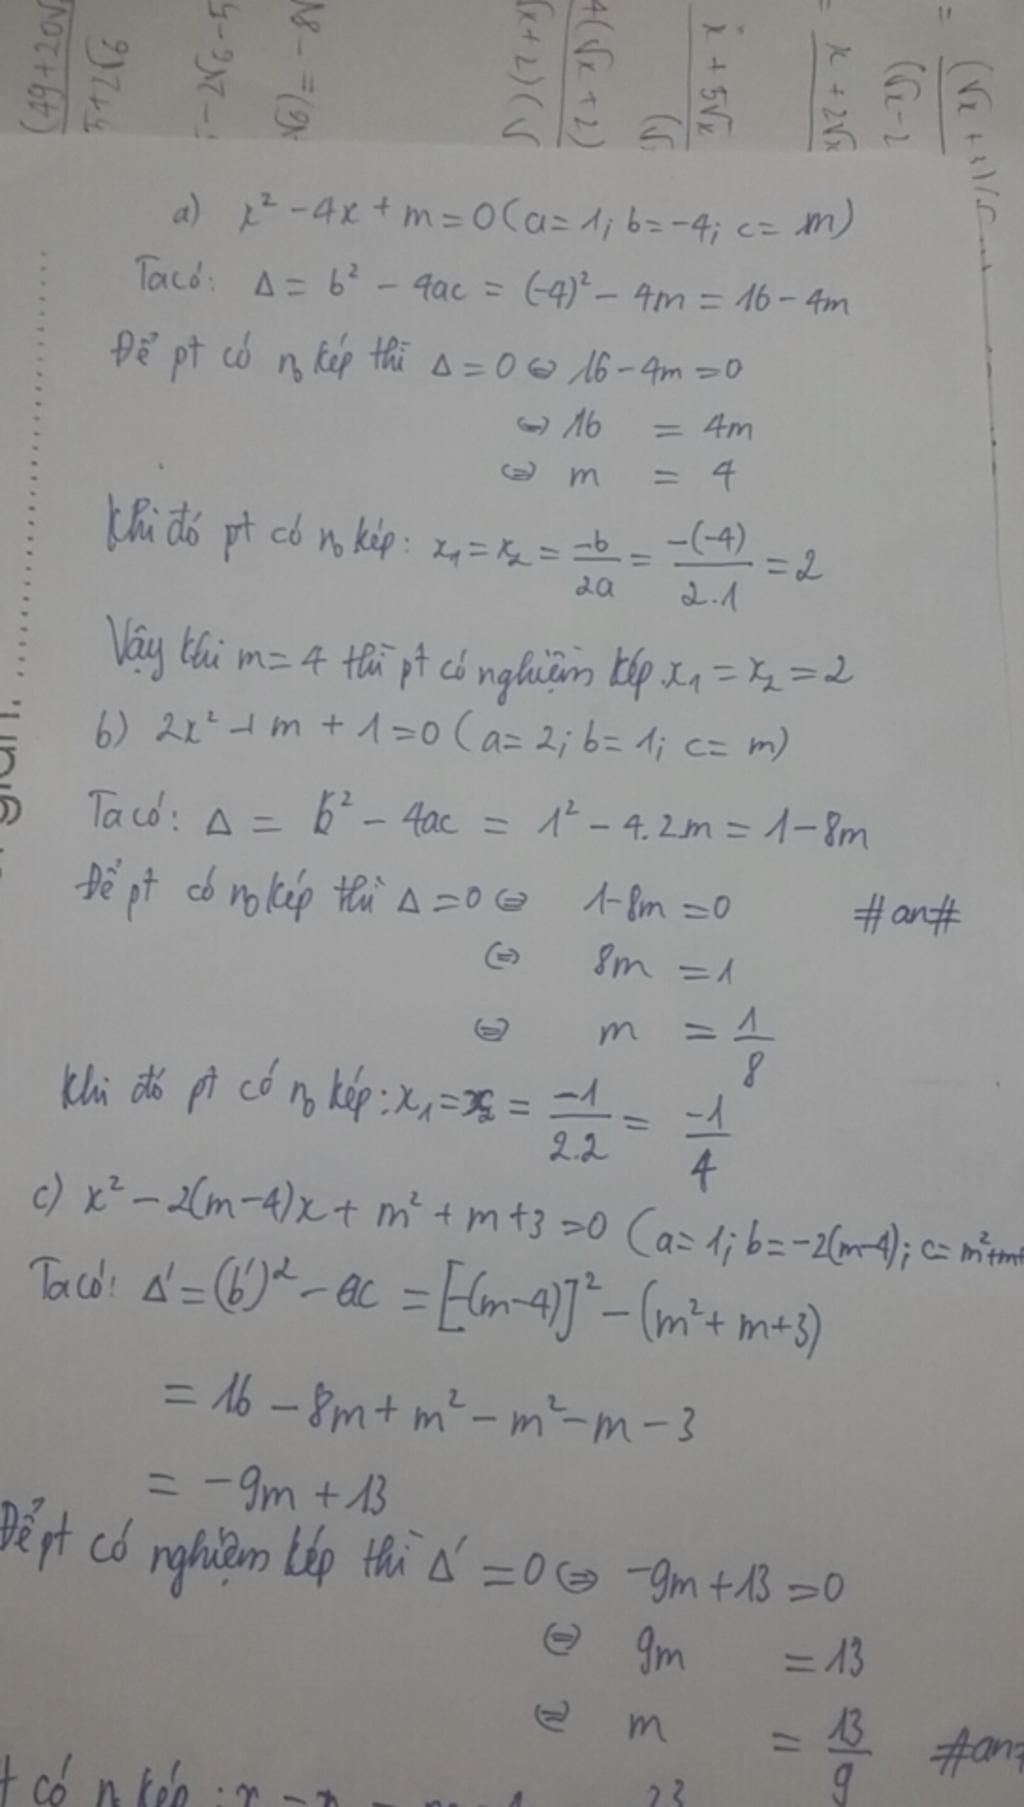 (49+20√
5+2√6
5-2√6-5
√8 - =(9)
√x+2)(√
4(√x+2)
x+5√x
(√
=
x+2√x
(√x-2
=
(√x+
a) x² - 4x + m = 0 (a=1; b=-4; c= m)
Ta có: Δ = b² - 4ac = (-4)² - 4m = 16 - 4m
Để pt có no kép thì Δ = 0 ⇔ 16 - 4m = 0
⇔ 16 = 4m
⇔ m = 4
Khi đó pt có no kép: x₁ = x₂ = -b/2a = -(-4)/2.1 = 2
Vậy khi m = 4 thì pt có nghiệm kép x₁ = x₂ = 2
b) 2x² + m + 1 = 0 (a= 2; b= 1; c= m)
Ta có: Δ = b² - 4ac = 1² - 4.2m = 1 - 8m
Để pt có no kép thì Δ = 0 ⇔ 1-8m = 0 #an#
⇔ 8m = 1
⇔ m = 1/8
Khi đó pt có no kép: x₁ = x₂ = -1/2.2 = -1/4
c) x² - 2(m-4)x + m² + m + 3 = 0 (a= 1; b= -2(m-4); c= m²+m+
Ta có: Δ' = (b')² - ac = [-(m-4)]² - (m² + m+3)
= 16 - 8m + m² - m² - m - 3
= -9m + 13
Để pt có nghiệm kép thì Δ' = 0 ⇔ -9m + 13 = 0
⇔ 9m = 13
⇔ m = 13/9 #an#
có no kép : x = x =